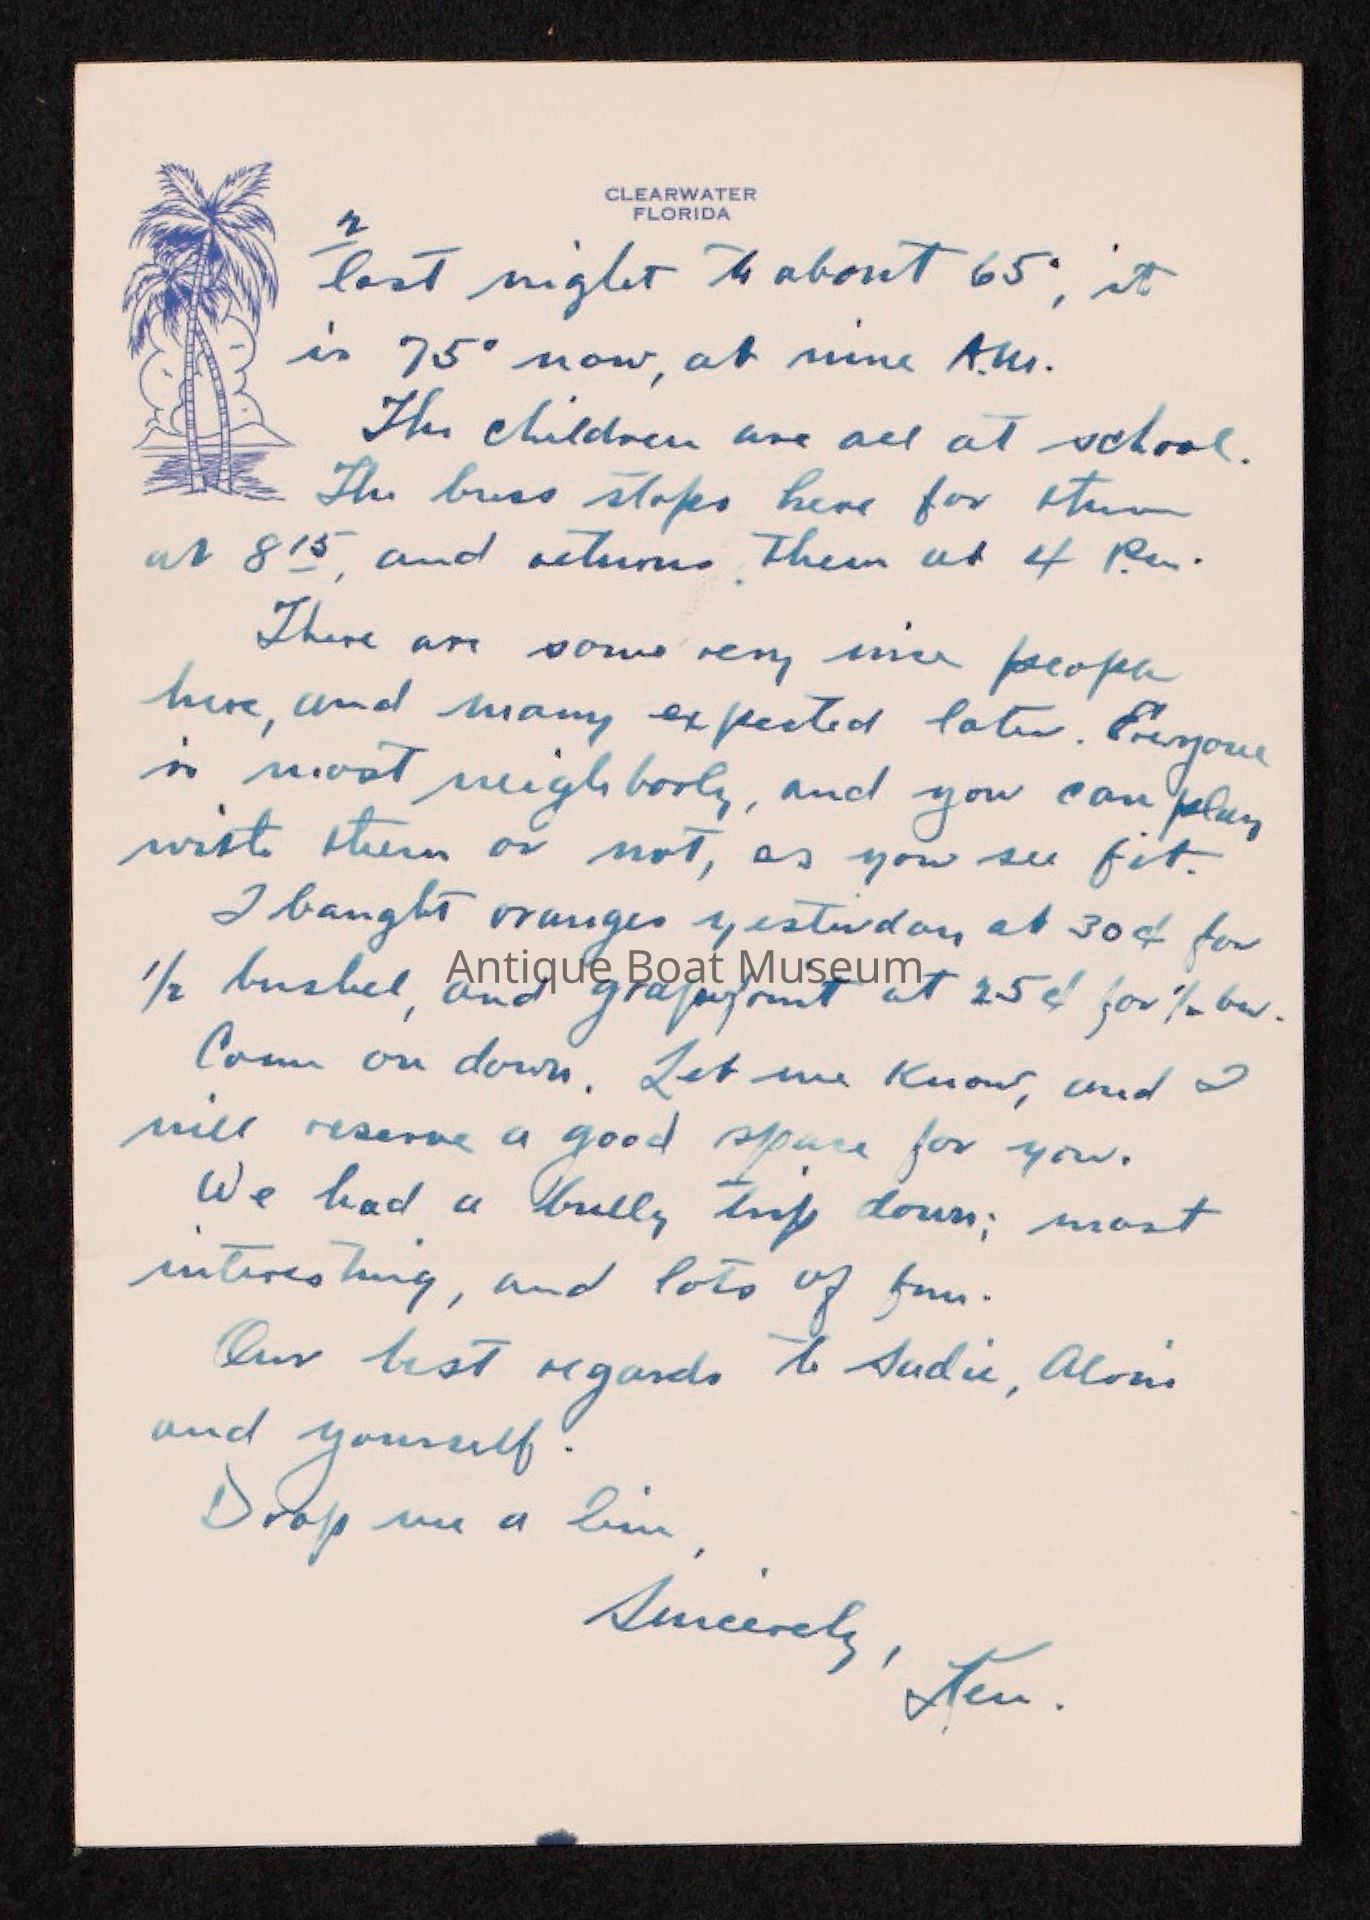 CLEARWATER
FLORIDA
2
last night to about 65°, it
is 75° now, at nine A.M.
The children are all at school.
The buss stops here for them
at 8 15, and returns them at 4 P.m.
There are some very nice people
here, and many expected later. Everyone
is most neighborly, and you can play
with them or not, as you see fit.
I baught oranges yesterday at 30¢ for
Antique Boat Museum
1/2 bushel, and grapefruit at 25¢ for 1/2 bu.
Come on down. Let me know, and I
will reserve a good space for you.
We had a bully trip down; most
interesting, and lots of fun.
Our best regards to Sadie,
and yourself.
Drop me a line,
Sincerely,
Ken.